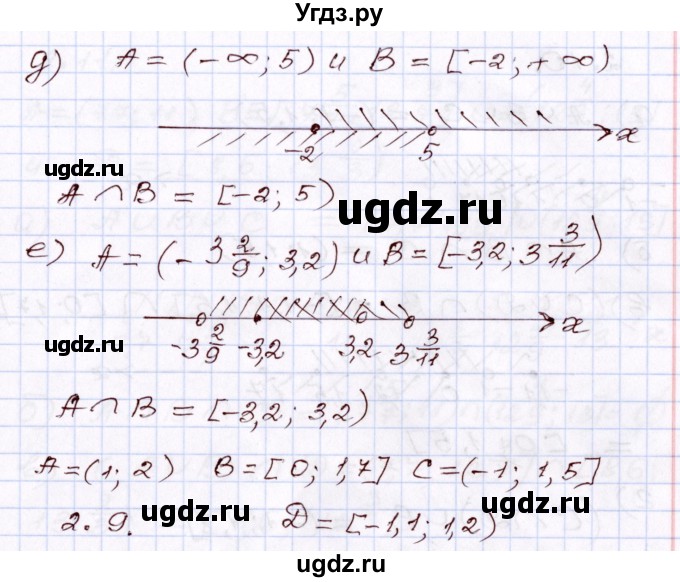 Угдз.ру
д) A = (-∞; 5) и B = [-2; +∞)
-2 5 x
ugdz.ru
A ∩ B = [-2; 5)
ugdz.ru
е) A = (-3 2/9; 3,2) и B = [-3,2; 3 3/11)
-3 2/9 -3,2 3,2 3 3/11 x
ugdz.ru
A ∩ B = [-3,2; 3,2)
A = (1; 2) B = [0; 1,7] C = (-1; 1,5]
ugdz.ru ugdz.ru
2. 9. D = [-1,1; 1,2)